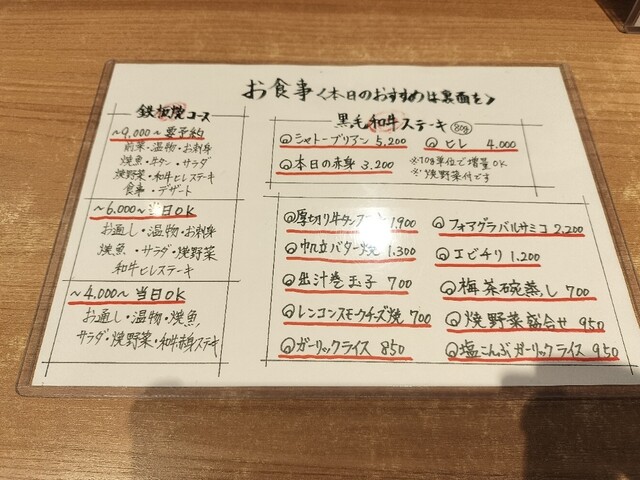 お食事〈本日のおすすめは裏面を〉
鉄板焼コース
~9,000~要予約
前菜・温物・お刺身
焼魚・牛タン・サラダ
焼野菜・和牛ヒレステキ
食事・デザート
~6,000~当日OK
お通し・温物・お刺身
焼魚・サラダ・焼野菜
和牛ヒレステキ
~4,000~当日OK
お通し・温物・焼魚
サラダ・焼野菜・和牛赤身ステキ
黒毛和牛ステーキ 80g
シャトーブリアン 5,200
ヒレ 4,000
本日の赤身 3,200
※10g単位で増量OK
※焼野菜付です
厚切り牛タン 1,900
フォアグラバルサミコ 2,200
帆立バター焼 1,300
エビチリ 1,200
出汁巻玉子 700
梅茶碗蒸し 700
レンコンスモークチーズ焼 700
焼野菜盛合せ 950
ガーリックライス 850
塩こんぶガーリックライス 950